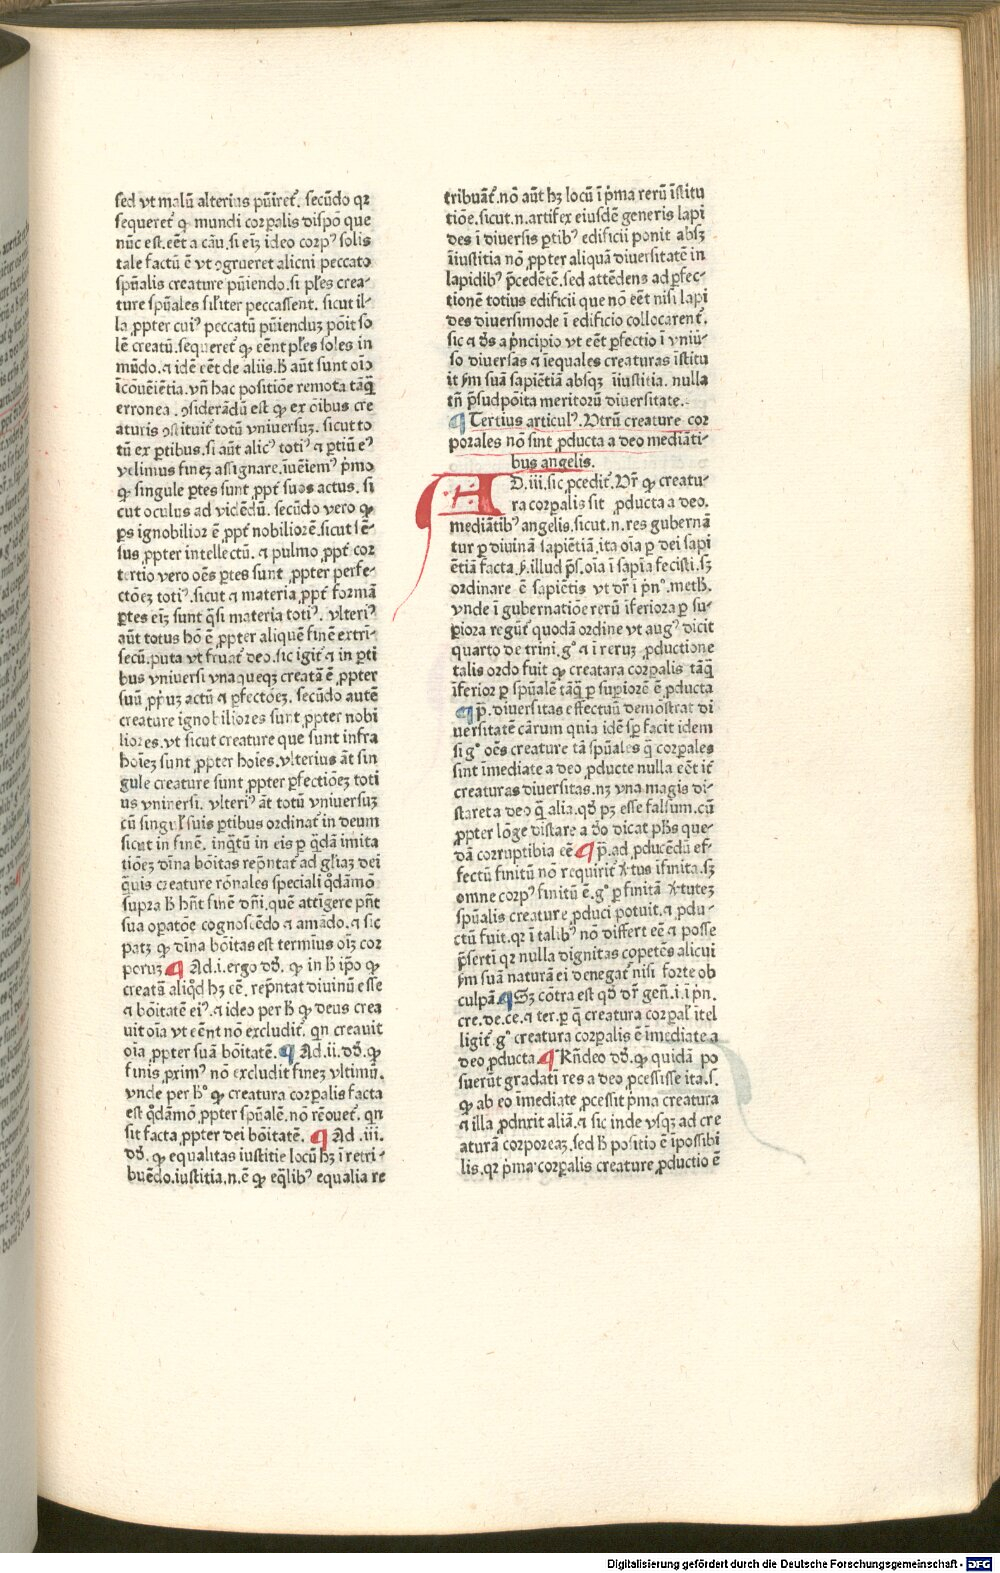 sed vt malū alterius pūiret᷑. secūdo qꝛ
sequeret᷑ ꝙ mundi corꝑalis dispō que
nūc est.eēt a cāu.si eiꝫ ideo corpꝰ solis
tale factū ē vt ꝯgrueret alicui peccato
spūalis creature pūiendo.si pl̄es crea-
ture spūales sil̄iter peccassent. sicut il-
la ꝓpter cuiꝰ peccatū pūienduꝫ pōit so
lē creatū.sequeret᷑ ꝙ eēnt pl̄es soles in
mūdo.⁊ idē eēt de aliis.h̄ aūt sunt oīo
īcōuēiētia.vn̄ hac positiōe remota tāꝙ̄
erronea. ꝯsiderādū est ꝙ ex oībus cre
aturis ꝯstituit᷑ totū vniuersuꝫ. sicut to
tū ex ꝑtibus.si aūt alicꝰ totiꝰ ⁊ ꝑtiū eꝰ
velimus fineꝫ assignare.īuēiemꝰ p̄mo
ꝙ singule ꝑtes sunt ꝓpt᷑ suos actus. si
cut oculus ad vidēdū. secūdo vero ꝙ
ꝑs ignobilior ē ꝓpt᷑ nobiliorē.sicut sē-
sus ꝓpter intellectū. ⁊ pulmo ꝓpt᷑ cor
tertio vero oēs ꝑtes sunt ꝓpter perfe-
ctōeꝫ totiꝰ.sicut ⁊ materia ꝓpt᷑ formā
ꝑtes eiꝫ sunt q̄si materia totiꝰ. vlteriꝰ
aūt totus hō ē ꝓpter aliquē finē extrī-
secū.puta vt fruat᷑ deo.sic igit᷑ ⁊ in ꝑti
bus vniuersi vnaqueqꝫ creatā ē ꝓpter
suū ꝓp̄uꝫ actū ⁊ ꝑfectōeꝫ. secūdo autē
creature ignobiliores sunt ꝓpter nobi
liores.vt sicut creature que sunt infra
hoīeꝫ sunt ꝓpter hoīes.vlterius āt sin
gule creature sunt ꝓpter ꝑfectiōeꝫ toti
us vniuersi. vlteriꝰ āt totū vniuersuꝫ
cū singul̄ suis ꝑtibus ordinat᷑ in deum
sicut in finē. inq̄tū in eis ꝑ q̄dā imita
tiōeꝫ dīna bōitas rep̄ntat᷑ ad gl̄iaꝫ dei
q̄uis creature rōnales speciali q̄dāmō
supra h̄ hn̄t finē dn̄i.quē attīgere pn̄t
sua oꝑatōe cognoscēdo ⁊ amādo.⁊ sic
patꝫ ꝙ dīna bōitas est termīus oīꝫ cor
poruꝫ ¶ Ad.i.ergo dd̄. ꝙ in h̄ ip̄o ꝙ
creatā aliq̄d hꝫ eē. rep̄ntat diuinū esse
⁊ bōitatē eiꝰ.⁊ ideo per h̄ ꝙ deus crea
uit oīa vt eēnt nō excludit᷑. qn creauit
oīa ꝓpter suā bōitatē. ¶ Ad.ii.dd̄.ꝙ
finis ꝓximꝰ nō excludit fineꝫ vltimū.
vnde per hº ꝙ creatura corꝑalis facta
est q̄dāmō ꝓpter spūalē.nō rēouet᷑. qn
sit facta ꝓpter dei bōitatē. ¶ Ad .iii.
dd̄. ꝙ equalitas iustitie locū hꝫ ī retri-
buēdo.iustitia.n.ē ꝙ eq̄libꝰ equalia re
tribuāt᷑.nō aūt hꝫ locū ī p̄ma rerū īstitu
tiōe.sicut.n.artifex eiusdē generis lapi
des ī diuersis ꝑtibꝰ edificii ponit absꝫ
īiustitia nō ꝓpter aliquā diuersitatē in
lapidibꝰ p̄cedētē.sed attēdens ad ꝑfec-
tionē totius edificii que nō eēt nisi lapi
des diuersimode ī edificio collocarent᷑.
sic ⁊ dd̄ a p̄ncipio vt eēt ꝑfectio ī vniu-
so diuersas ⁊ īequales creaturas īstitu
it ẜm suā sapiētiā absqꝫ īiustitia. nulla
tn̄ p̄sudpōita meritorū diuersitate.
¶ Tertius articulꝰ.Vtrū creature cor
porales nō sint ꝓducta a deo mediāti-
bus angelis.
AD.iii.sic ꝓcedit᷑.Vr̄ ꝙ creatu-
ra corꝑalis sit ꝓducta a deo.
mediātibꝰ angelis.sicut.n.res gubernā
tur ꝑ diuinā sapiētiā.ita oīa ꝑ dei sapi
ētiā facta.ẜ.illud p̄s.oīa ī sapia fecisti.sꝫ
ordinare ē sapiētis vt dr̄ ī pn̄º.meth̄.
vnde ī gubernatiōe rerū īferiora ꝑ su-
ꝑiora regūt᷑ quodā ordine vt augꝰ dicit
quarto de trini.gº ⁊ ī reruꝫ ꝓductione
talis ordo fuit ꝙ creatara corꝑalis tāq̄
īferior ꝑ spūalē tāq̄ ꝑ suꝑiorē ē ꝓducta
¶ p̄. diuersitas effectuū demōstrat di
uersitatē cārum quia idē sꝑ facit idem
si gº oēs creature tā spūales q̄ corꝑales
sint īmediate a deo ꝓducte nulla eēt īt᷑
creaturas diuersitas.nꝫ vna magis di-
staret a deo q̄ alia.qd̄ pꝫ esse falsum.cū
ꝓpter lōge distare a dō dicat ph̄s que-
dā corruptibia eē ¶ p̄.ad ꝓducēdū ef-
fectū finitū nō requirit᷑ v̓tus īfinita.sꝫ
omne corpꝰ finitū ē.gº ꝑ finitā v̓tuteꝫ
spūalis creature ꝓduci potuit.⁊ ꝓdu-
ctū fuit.qꝛ ī talibꝰ nō differt eē ⁊ posse
p̄serti qꝛ nulla dignitas copetēs alicui
ẜm suā naturā ei denegat᷑ nisi forte ob
culpā.¶ Sꝫ cōtra est qd̄ dr̄ gen̄.i.ī pn̄.
cre.de.ce.⁊ ter.ꝑ q̄ creatura corꝑal̄ ītel
ligit᷑.gº creatura corꝑalis ē īmediate a
deo ꝓducta.¶ Rn̄deo dd̄.ꝙ quidā po
suerūt gradati res a deo ꝓcessisse ita.s.
ꝙ ab eo īmediate ꝓcessit p̄ma creatura
⁊ illa ꝓduxit aliā.⁊ sic inde vsqꝫ ad cre
aturā corporeaꝫ.sed h̄ positio ē īpossibi
lis.qꝛ p̄ma corꝑalis creature ꝓductio ē
Digitalisierung gefördert durch die Deutsche Forschungsgemeinschaft - DFG